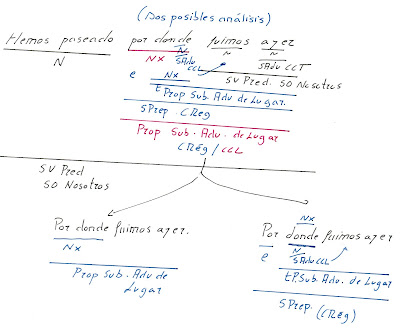 (Dos posibles análisis)
Hemos paseado por donde fuimos ayer
N NX N N N
SAdv CCL SAdv CCT
e NX SV Pred. SO Nosotros
E Prop Sub. Adv de Lugar
SPrep CReg
Prop Sub. Adv. de Lugar
CReg / CCL
SV Pred
SO Nosotros
Por donde fuimos ayer.
NX
Prop Sub. Adv de
Lugar
NX
Por donde fuimos ayer
e N
SAdv CCL
E P. Sub. Adv. de Lugar
SPrep. (CReg)